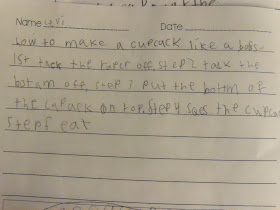 Name uvi Date
how to make a cupcack like a boss
1st tack the raper off, step 2 tack the
botum off, soop 3 put the bottm of
the cupack on top, step 4 the cupca
step5 eat